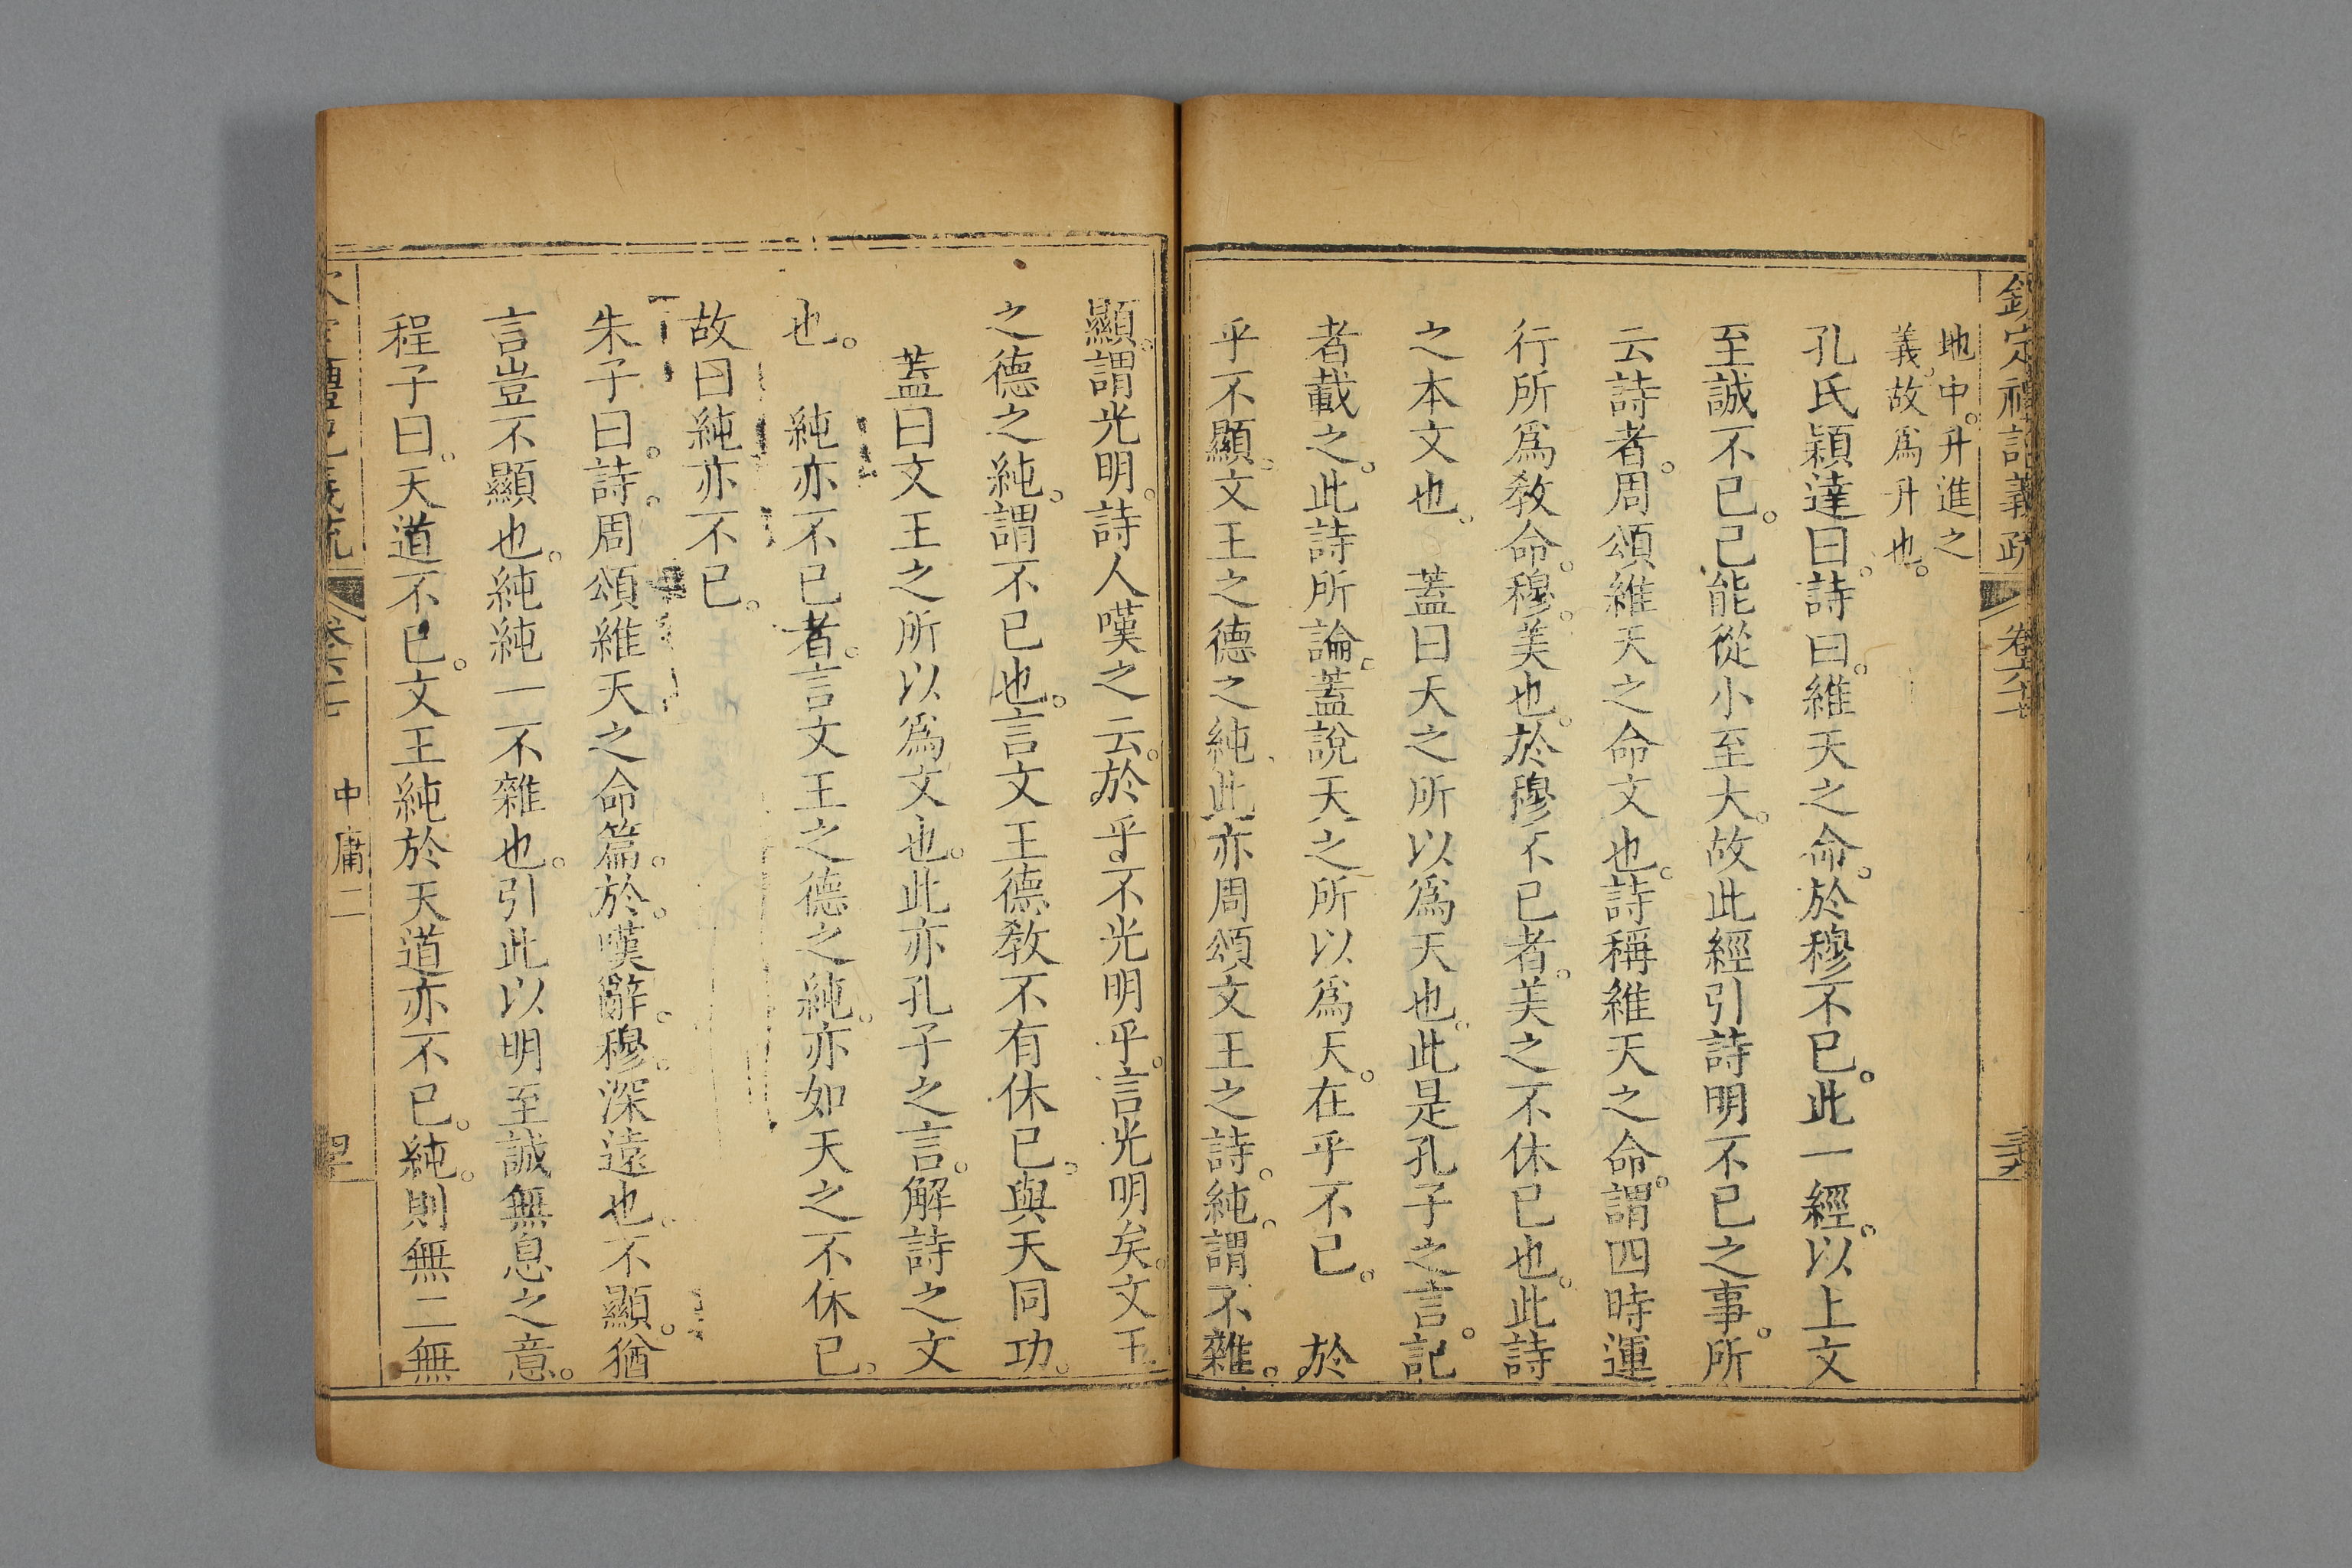 欽定禮記義疏 卷六十
地中。升進之
義。故爲升也。
孔氏穎達曰。詩曰。維天之命。於穆不已。此一經。以上文
至誠不已。已能從小至大。故此經引詩明不已之事。所
云詩者。周頌維天之命文也。詩稱維天之命。謂四時運
行所爲敎命。穆。美也。於穆不已者。美之不休已也。此詩
之本文也。 蓋曰天之所以爲天也。此是孔子之言。記
者載之。此詩所論。蓋說天之所以爲天。在乎不已。 於
乎不顯。文王之德之純。此亦周頌文王之詩。純。謂不雜。
顯。謂光明。詩人嘆之云。於乎不光明乎。言光明矣。文王
之德之純。謂不已也。言文王德敎不有休已。與天同功。
蓋曰文王之所以爲文也。此亦孔子之言。解詩之文
也。 純亦不已者。言文王之德之純。亦如天之不休已。
故曰純亦不已。
朱子曰。詩。周頌維天之命篇。於。嘆辭。穆。深遠也。不顯。猶
言豈不顯也。純。純一不雜也。引此以明至誠無息之意。
程子曰。天道不已。文王純於天道亦不已。純。則無二無
中庸二